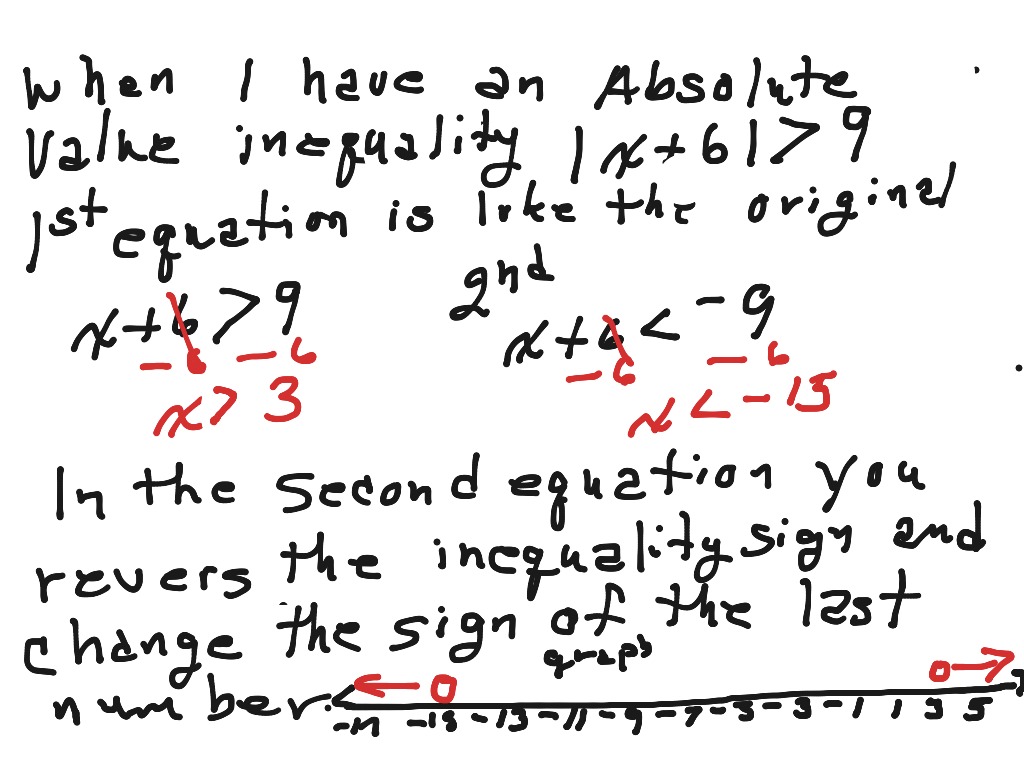 When I have an Absolute
Value inequality |x+6|>9
1st equation is like the original
2nd
x+6>9 x+6<-9
-6 -6 -6 -6
x>3 x<-15
In the second equation you
revers the inequality sign and
change the sign of the last
graph
number.
0 0
-13 -11 -9 -7 -3 -1 1 3 5